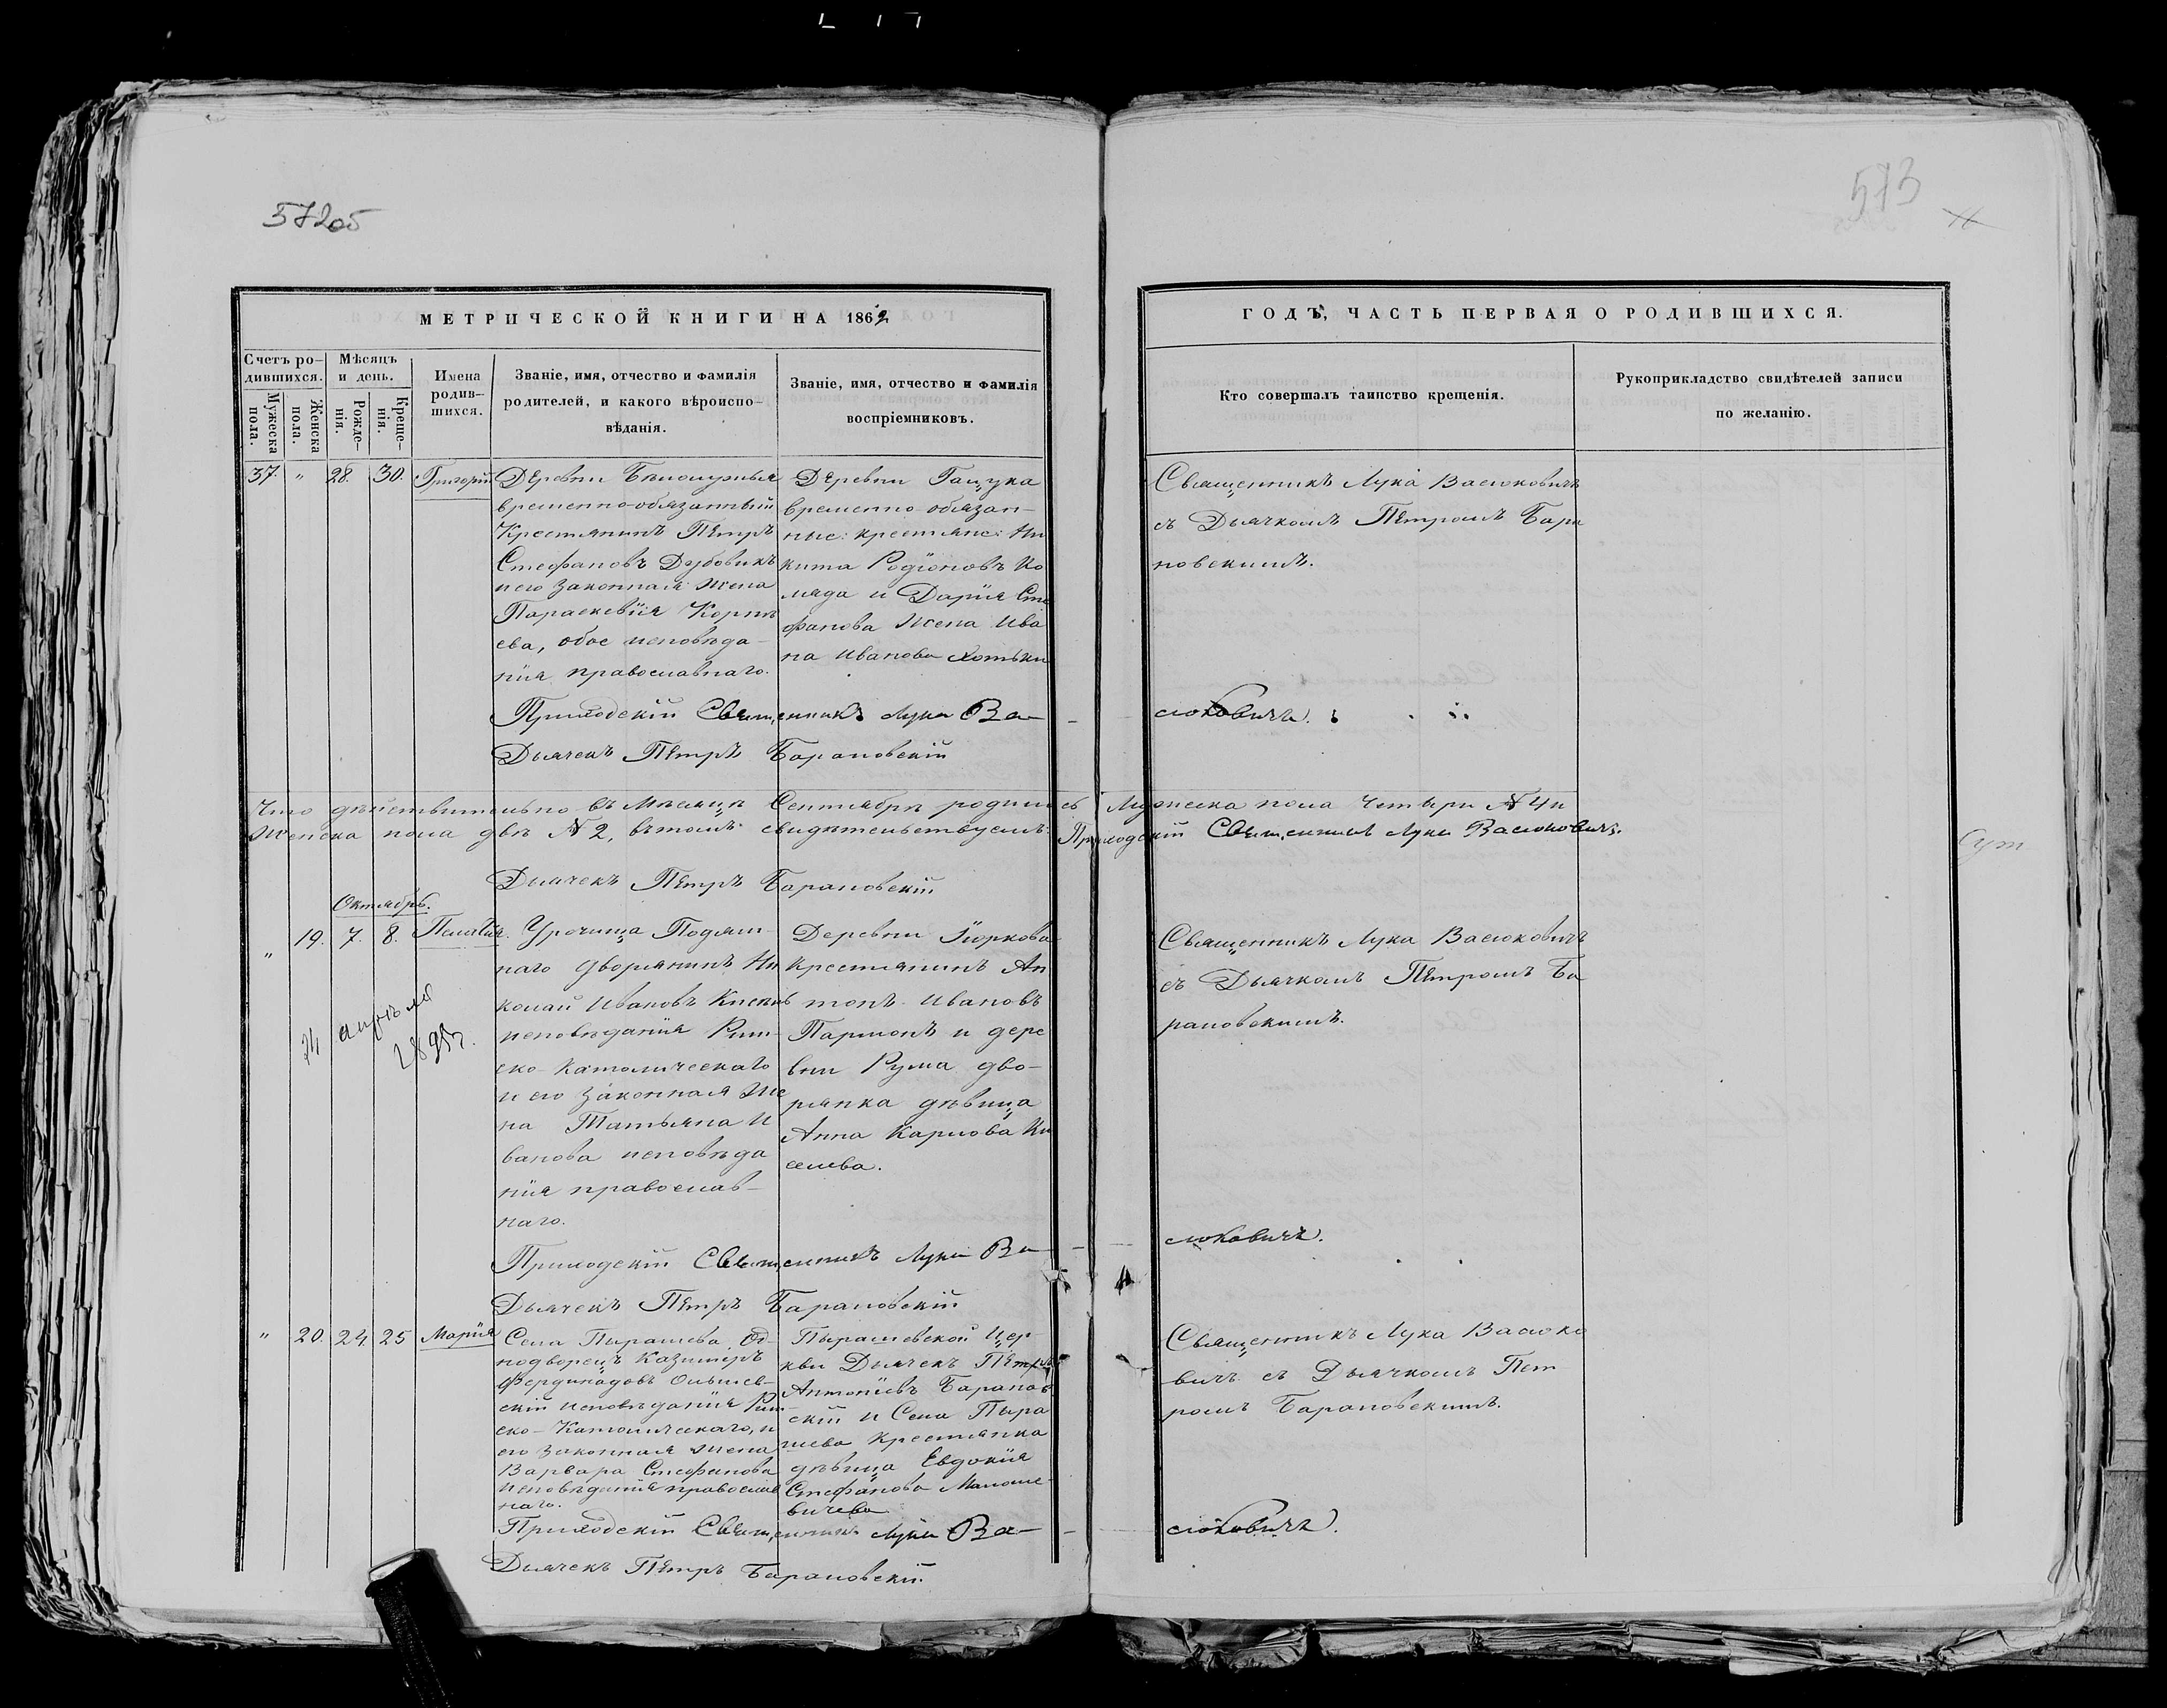 57205
573
МЕТРИЧЕСКОЙ КНИГИ НА 1862
ГОДЪ, ЧАСТЬ ПЕРВАЯ О РОДИВШИХСЯ.
Счетъ ро-
дившихся.
Мужеска пола.
Женска пола.
Мѣсяцъ
и день.
Рожде-
нія.
Креще-
нія.
Имена
родив-
шихся.
Званіе, имя, отчество и фамилія
родителей, и какого вѣроиспо-
вѣданія.
Званіе, имя, отчество и фамилія
воспріемниковъ.
Кто совершалъ таинство крещенія.
Рукоприкладство свидѣтелей записи
по желанію.
37. " 28. 30. Григорій
Деревни
временно-обязанный
Крестьянинъ Пётръ
Стефановъ Дубовикъ
и его законная жена
Параскевія Корнѣ
ева, обое исповѣда-
нія православнаго.
Деревни Гацука
временно обязан-
ные: крестьяне: Ни
кита Родіоновъ Ко
ляда и Дарія Сте
фанова жена Ива
на Иванова Хотьки
Священникъ Лука Васюковичъ
съ Дьячкомъ Пётромъ Бара
новскимъ.
Приходскій Священникъ Лука Ва-
сюковичъ.
Дьячекъ Пётръ Барановскій
Что дѣйствительно въ мѣсяцѣ Сентябрѣ родилось Мужеска пола четыри № 4 и
Женска пола двѣ № 2, въ томъ свидѣтельствуемъ: Приходскій Священникъ Лука Васюковичъ.
Дьячекъ Пётръ Барановскій
Октябрь.
" 19. 7. 8. Пелагія.
24 апрѣля
1895г.
Урочища Подям-
наго Дворянинъ Ни
колай Ивановъ
исповѣданія Рим-
ско-Католическаго
и его законная же
на Татьяна И
ванова исповѣда
нія православ-
наго.
Деревни Юркова
крестьянинъ Ан
тонъ Ивановъ
Пармонъ и дере
вни Рума дво-
рянка дѣвица
Анна Карлова Ки
селева.
Священникъ Лука Васюковичъ
съ Дьячкомъ Пётромъ Ба
рановскимъ.
Приходскій Священникъ Лука Ва-
сюковичъ.
Дьячекъ Пётръ Барановскій
" 20. 24. 25 Марія
Села Пырашева Од-
нодворецъ Казимиръ
Фердинадовъ Ольшев-
скій исповѣданія Рим-
ско-Католическаго, и
его законная жена
Варвара Стефанова
исповѣданія православ
наго.
Пырашевской Цер-
кви Дьячекъ Пётръ
Антоніевъ Баранов
скій и Села Пыра
шева крестьянка
дѣвица Евдокія
Стефанова Малаше-
вичева
Священникъ Лука Васюко
вичъ съ Дьячкомъ Пет
ромъ Барановскимъ.
Приходскій Священникъ Лука Ва-
сюковичъ.
Дьячекъ Пётръ Барановскій